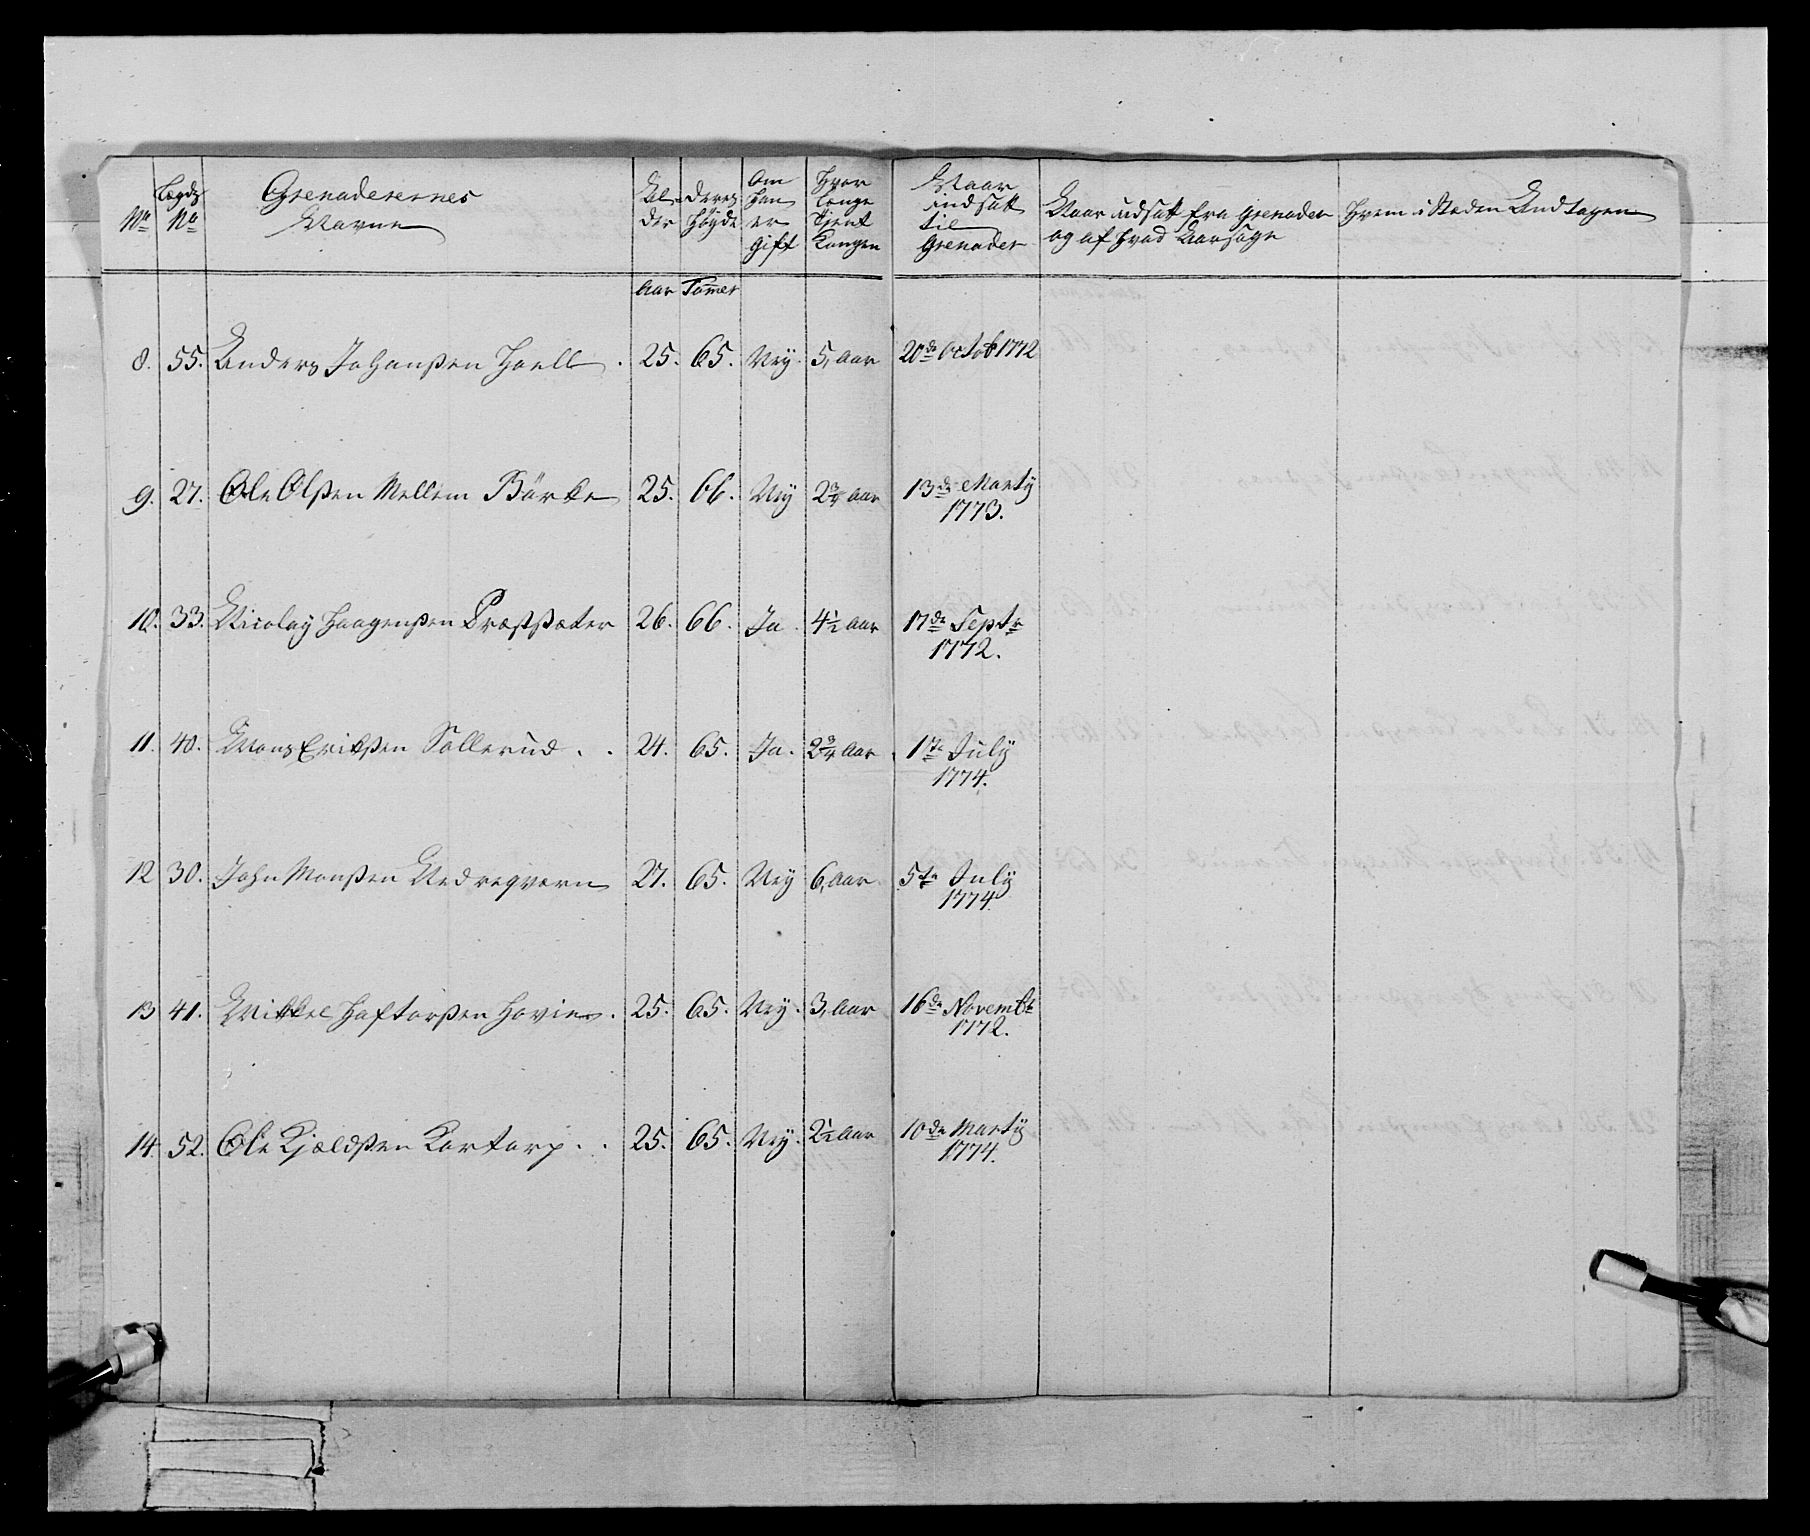 No Lægds No Grenaderernes Navne Alder Deres Høyde Om han er gift Hvor længe tjent Kongen Naar indsatt til Grenader Naar udsatt fra Grenader og af hvad Aarsage Hvem i Steden Andtagen
Aar Tommer
8. 55. Anders Johanßen Hoell. 25. 65. Ney. 5, Aar 20de Octob 1772
9. 27. Ole Olßen Mellem Börke 25. 66. Ney 2 3/4 Aar 13de Marty
1773.
10. 33. Nicolay Haagenßen Præstsæter 26. 66. Ja. 4 1/2 Aar 17de Septr
1772.
11. 40. Mons Erikßen Sollerud . . 24. 65. Ja. 2 3/4 Aar 1te July
1774.
12 30. John Monßen Nedreqvern 27. 65. Ney 6, Aar 5te July
1774
13 41. Mikkel Haftorßen Hovie. 25. 65. Ney. 3, Aar 16de Novembr
1772.
14. 52. Ole Kjeldßen Kortorp. . 25. 65. Ney. 2 1/2 Aar 10de Marty
1774.